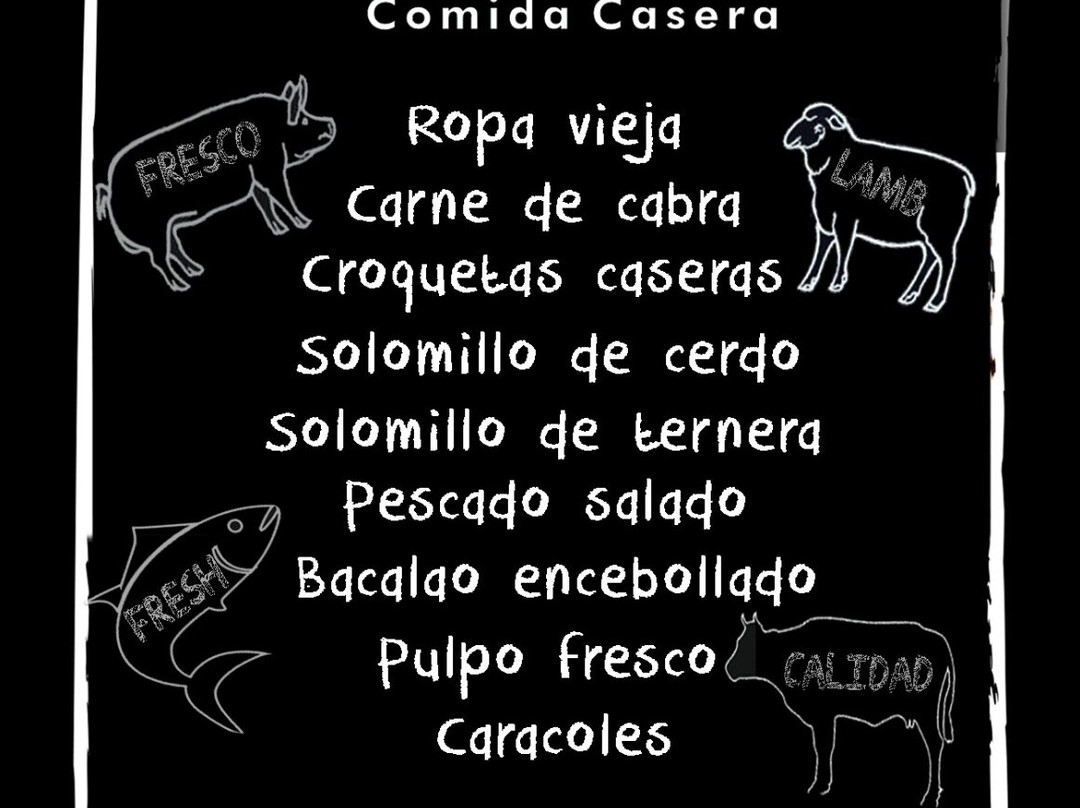 Comida Casera
Ropa vieja
FRESCO
LAMB
Carne de cabra
Croquetas caseras
Solomillo de cerdo
Solomillo de ternera
Pescado salado
Bacalao encebollado
FRESH
Pulpo fresco
CALIDAD
Caracoles